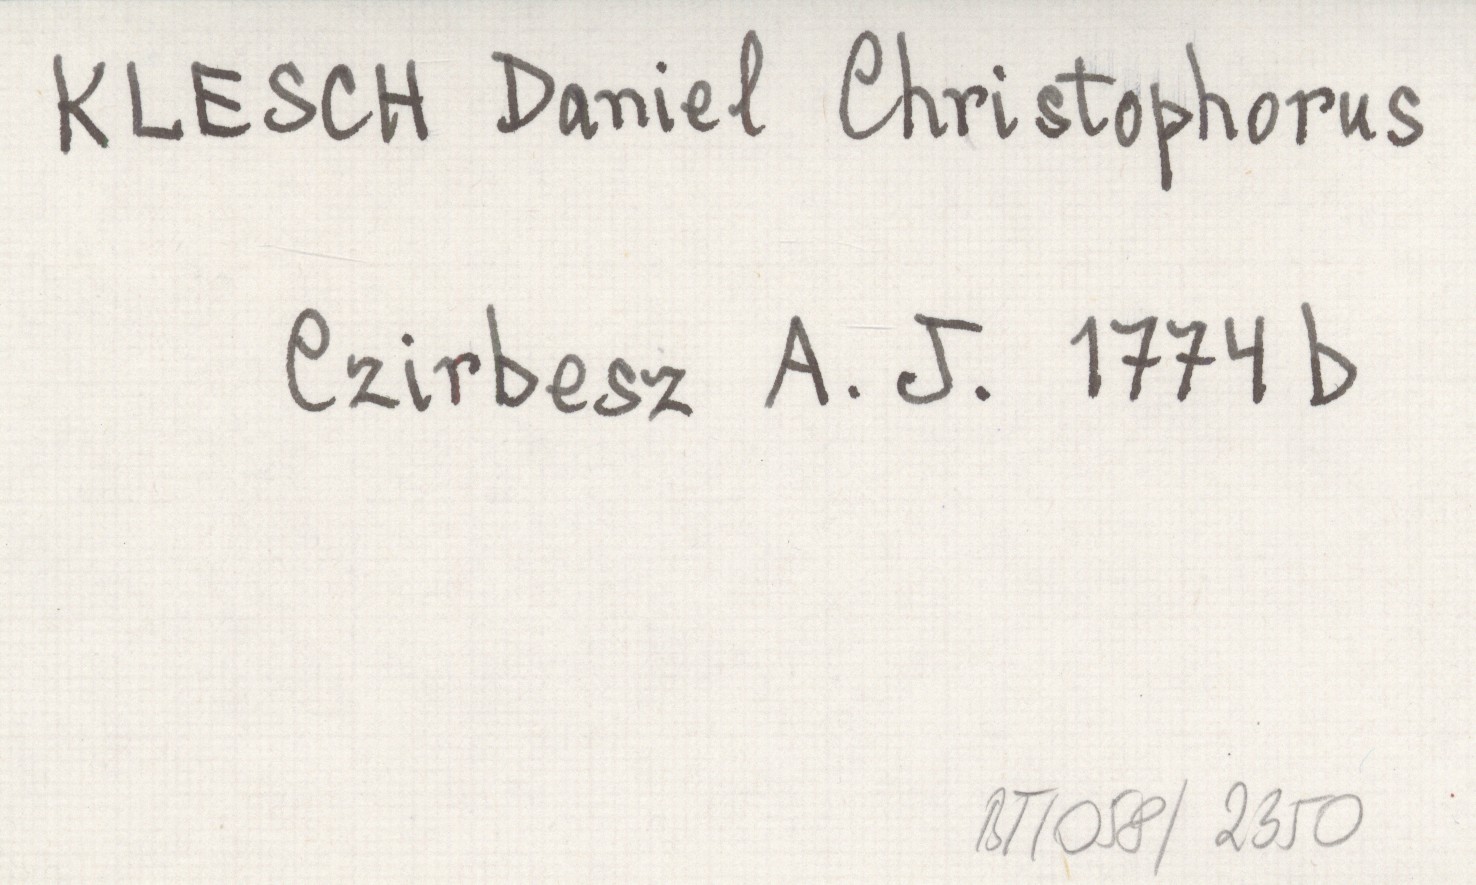 KLESCH Daniel Christophorus
Czirbesz A. J. 1774 b
BT/058/ 2350